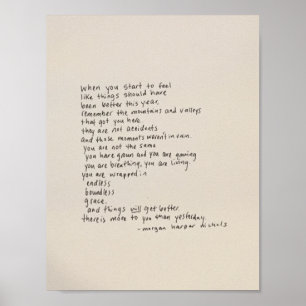 when you start to feel
like things should have
been better this year,
remember the mountains and valleys
that got you here.
they are not accidents
and those moments weren't in vain.
you are not the same.
you have grown and you are growing
you are breathing, you are living.
you are wrapped in
endless
boundless
grace.
and things will get better.
there is more to you than yesterday.
- morgan harper nichols